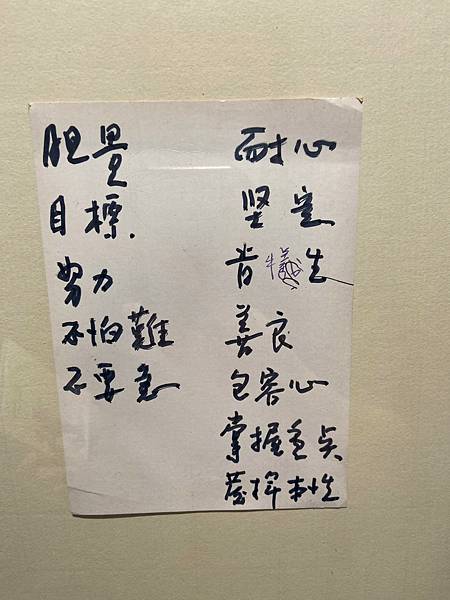 胆量
目標.
努力
不怕難
不要急
耐心
坚定
肯犧生
善良
包容心
掌握重点
發揮本性